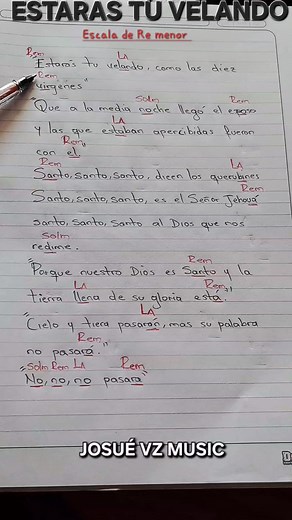 ESTARAS TU VELANDO
Escala de Re menor
Rem LA
"Estarás tu velando, como las diez
Rem
vírgenes"
Solm Rem
"Que a la media noche llegó el esposo
LA
y las que estaban apercibidas fueron
Rem
con el"
Rem LA
Santo, santo, santo, dicen los querubines
Rem
Santo, santo, santo, es el Señor Jehová
santo, santo, santo al Dios que nos
Solm
redime.
Rem
"Porque nuestro Dios es Santo y la
LA Rem
tierra llena de su gloria está."
LA
"Cielo y tiera pasarán, mas su palabra
Rem
no pasará."
Solm Rem LA Rem
"No, no, no pasará"
JOSUÉ VZ MUSIC